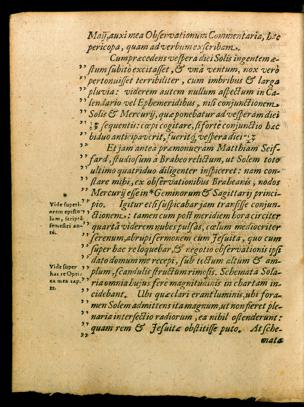 Maij, auxi mea Observationum Commentaria, hæc
pericopa, quam ad verbum exscribam.
Cum præcedens vespera diei Solis ingentem æ-
stum subitò excitasset, & unà ventum, nox verò
pertonuisset terribiliter, cum imbribus & larga
pluvia: viderem autem nullum aspectum in Ca-
lendario vel Ephemeridibus, nisi conjunctionem
Solis & Mercurij, quæ ponebatur ad vesperam diei
sequentis: cœpi cogitare, si forte conjunctio hæc
biduo anticipaverit, fueritque vespera diei
Et jam antea præmonueram Matthiam Seif-
fard, studiosum à Braheo relictum, ut Solem toto
ultimo quatriduo diligenter inspiceret: nam con-
stare mihi, ex observationibus Braheanis, nodos
Mercurij esse in Geminorum & Sagittarij princi-
pio. Igitur etsi suspicabar jam transisse conjun-
ctionem: tamen cum post meridiem hora circiter
quarta viderem nubes pulsas, cœlum mediocriter
serenum, abrupi sermonem cum Jesuita, quo cum
super hac re loquebar, & negotio observationis ipsi
dato domum me recepi, sub tectum altum & am-
plum, scandulis structum rimosis. Schemata Sola-
ria omnia hujus fere magnitudinis in chartam in-
cidebant. Ubi quæ clari erant luminis, ubi fora-
men Solem admittens ita magnum, ut non fieret ple-
naria intersectio radiorum, ea nihil ostenderunt:
quam rem & Jesuitæ obstitisse puto. At sche-
mata
Vide superi-
orem episto-
lam, scriptã
semestri an-
tè.
Vide super
hac re Opti-
ca mea cap.